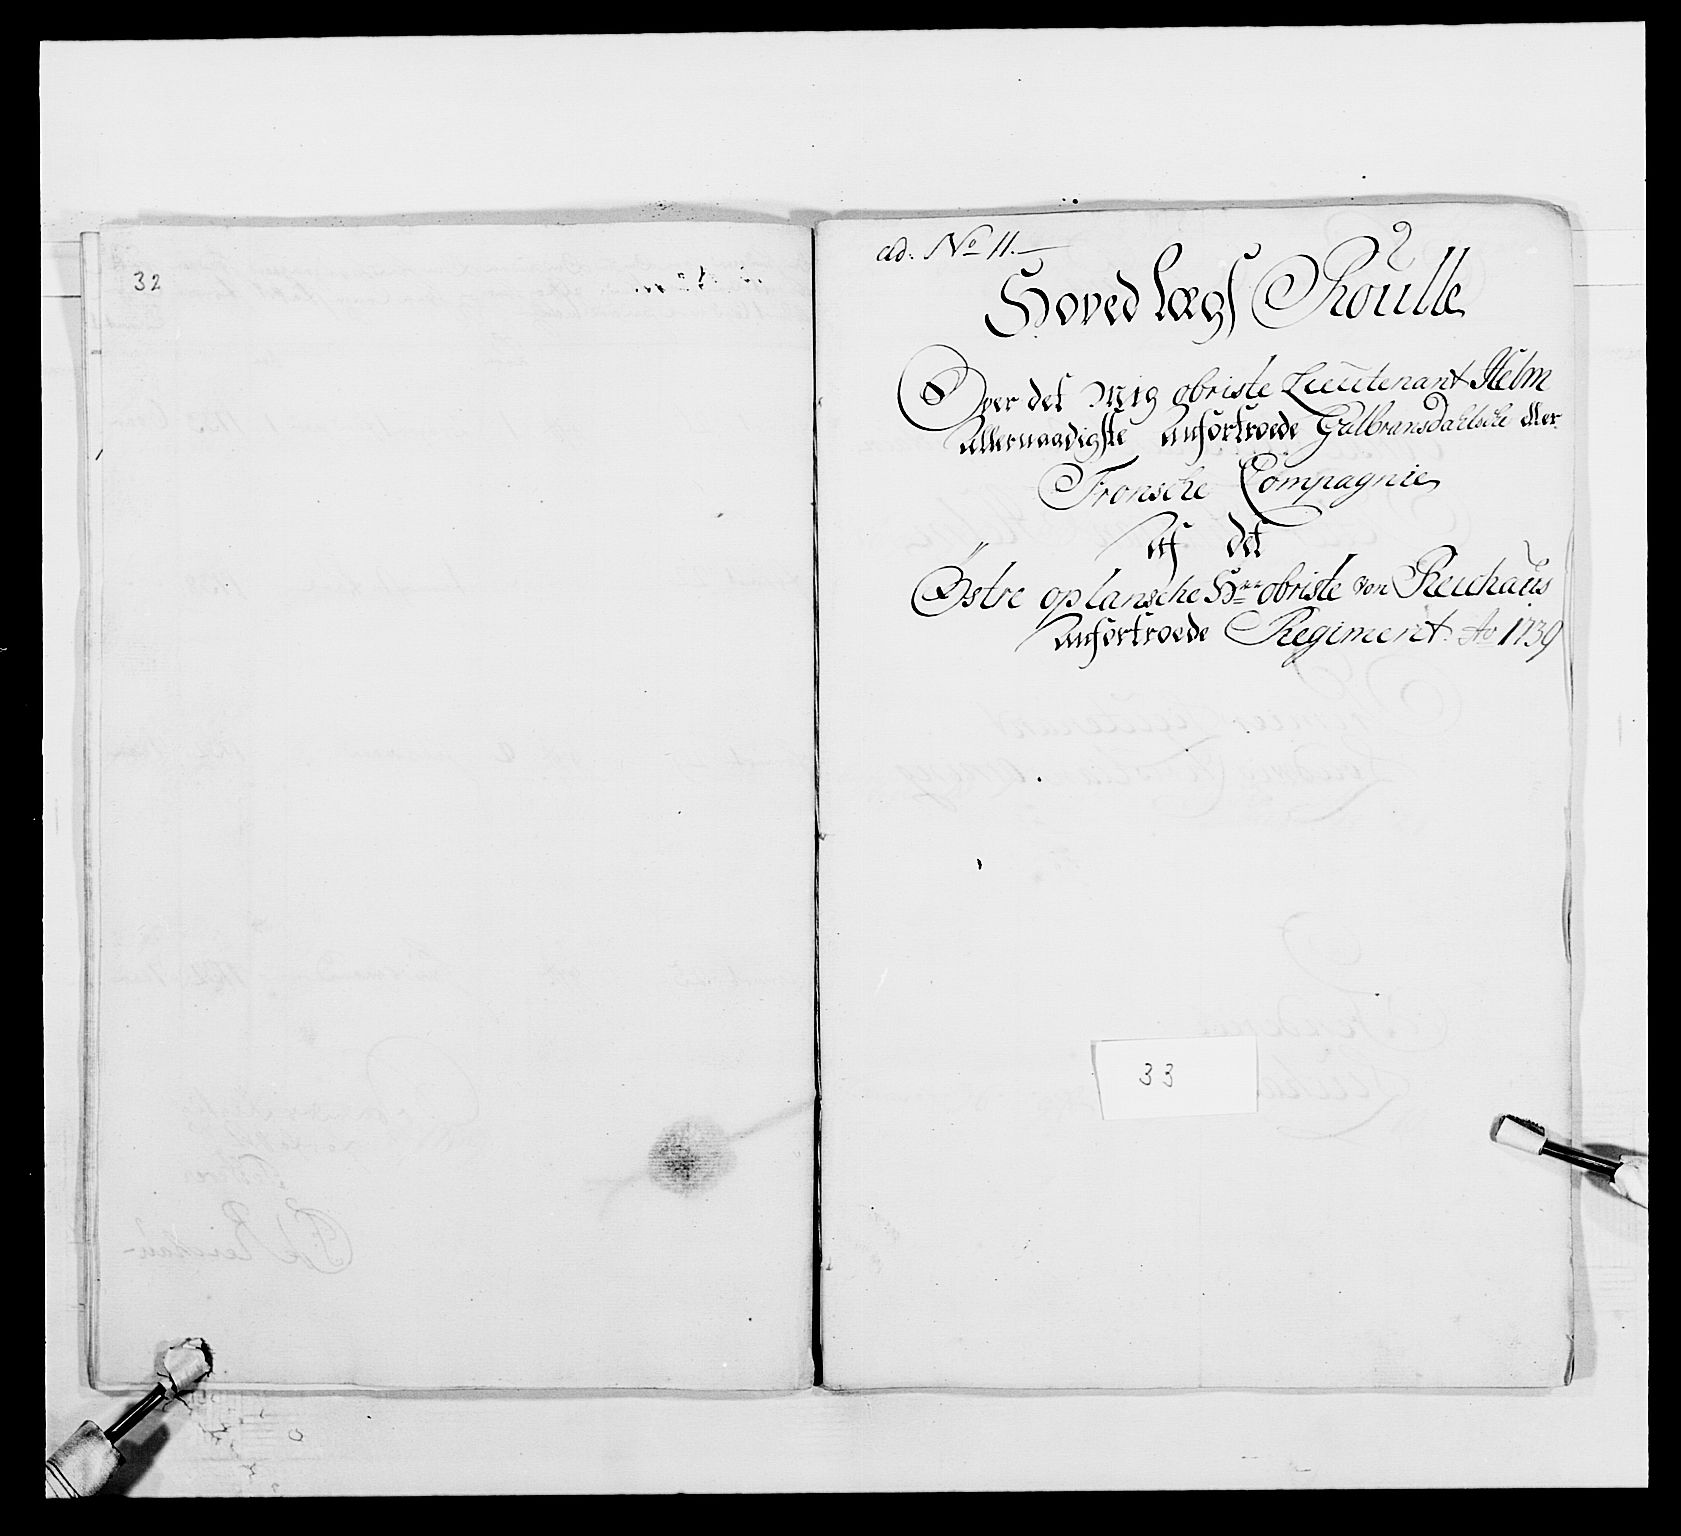 32
ad. No 11.
Hoved Lægs Roulle
Over det Mig obriste Lieutenant Helm
Allernaadigste Anfortroede Gulbransdahlsche eller
Fronsche Compagnie
af det
Östre oplansche Hrr obriste von Reichaus
Anfortroede Regiment Ao 1739
33